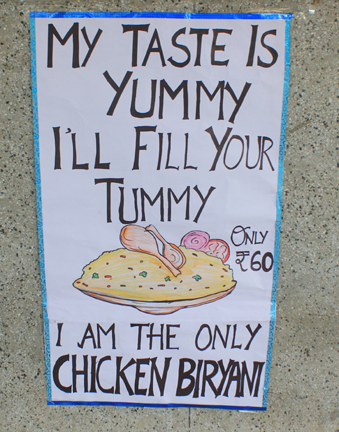 My Taste Is
Yummy
I'll Fill Your
Tummy
Only
₹60
I Am The Only
Chicken Biryani